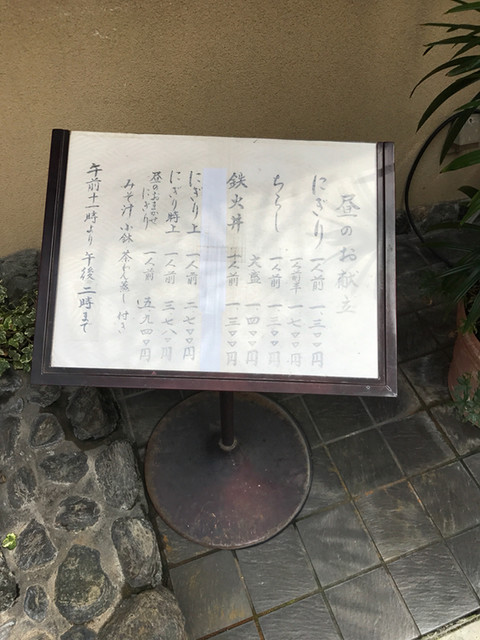 昼のお献立
にぎり 一人前 一、三〇〇円
一人前半 一、七〇〇円
ちらし 一人前 一、三〇〇円
大盛 一、四〇〇円
鉄火丼 一人前 一、三〇〇円
にぎり上 一人前 二、七〇〇円
にぎり特上 一人前 三、七〇〇円
昼のおまかせにぎり 一人前 五、九四〇円
みそ汁 小鉢 茶わん蒸し 付き
午前十一時より 午後二時まで